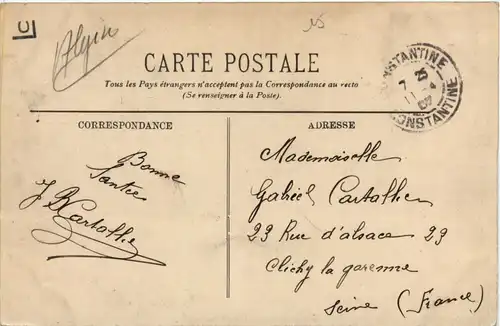 Algérie
CARTE POSTALE
Tous les Pays étrangers n'acceptent pas la Correspondance au recto
(Se renseigner à la Poste).
CONSTANTINE
CONSTANTINE
CORRESPONDANCE
Bonne
Santée
J Cartallier
ADRESSE
Mademoiselle
Gabriel Cartallier
23 Rue d'alsace 23
Clichy la garenne
Seine (France)